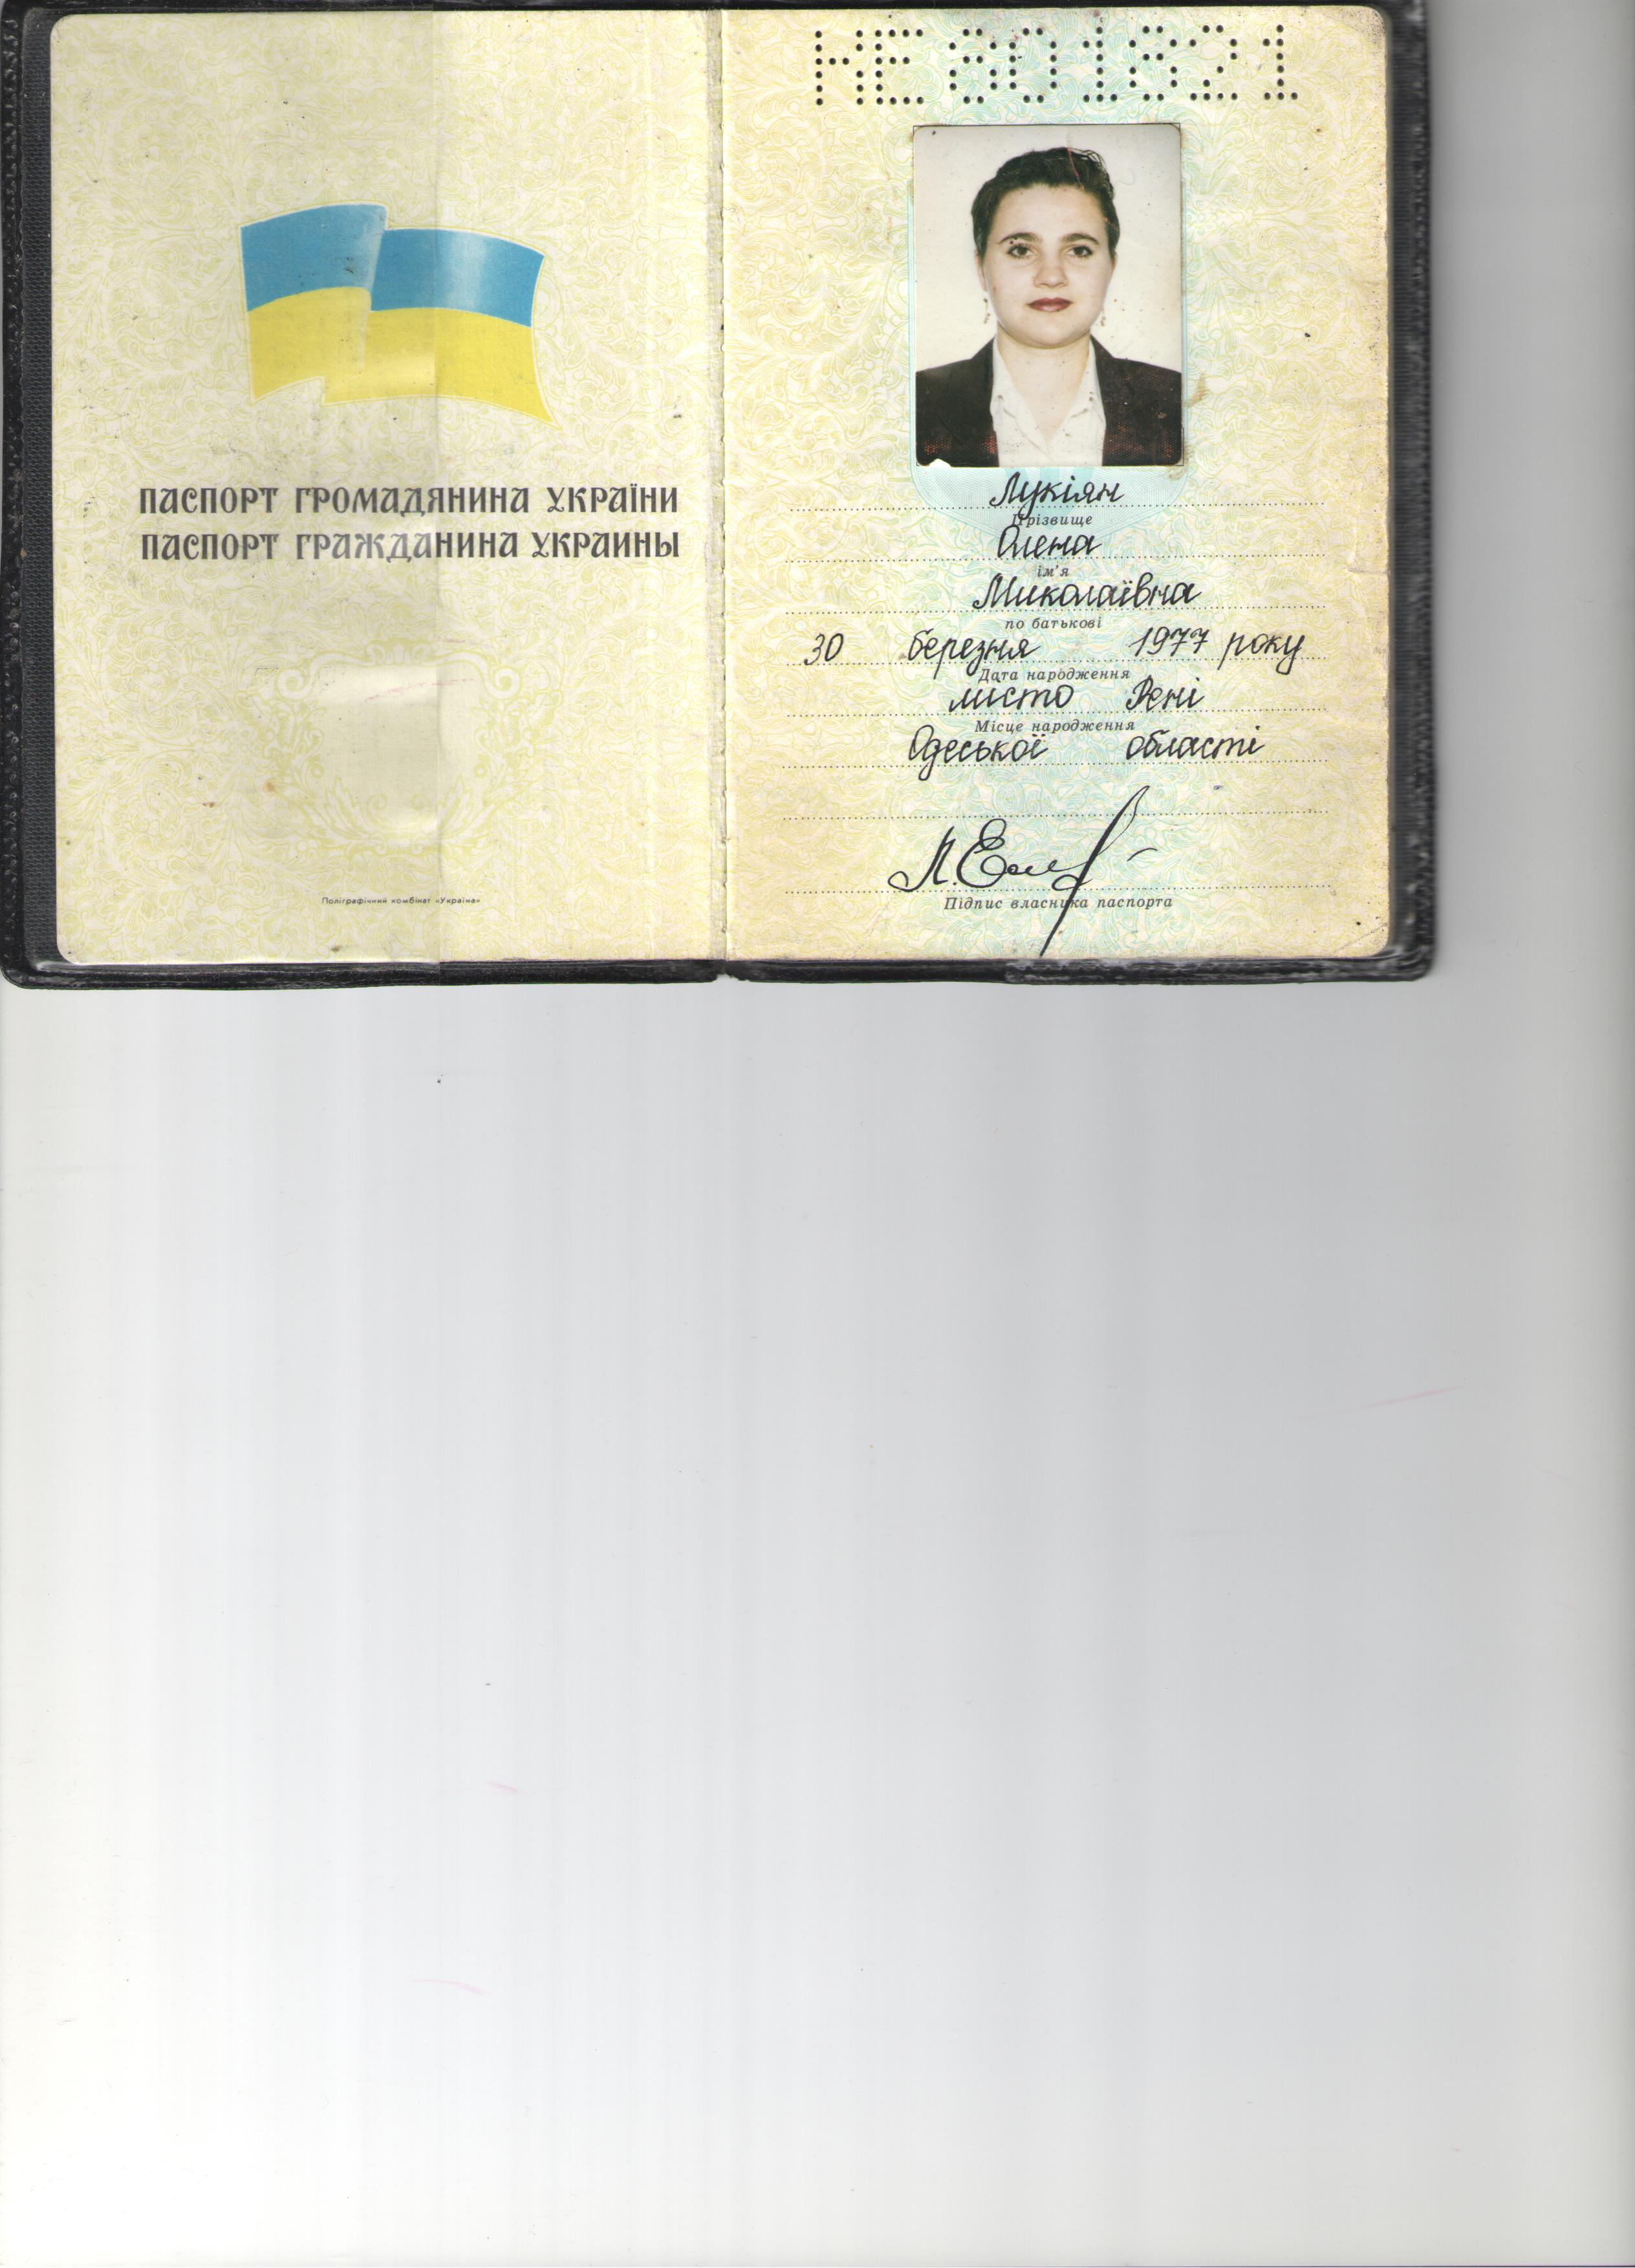 ПАСПОРТ ГРОМАДЯНИНА УКРАЇНИ
ПАСПОРТ ГРАЖДАНИНА УКРАИНЫ
Поліграфічний комбінат «Україна»
801821
Лукіян
Прізвище
Олена
ім'я
Миколаївна
по батькові
30 березня 1977 року
Дата народження
місто Рені
Місце народження
Одеської області
Підпис власника паспорта